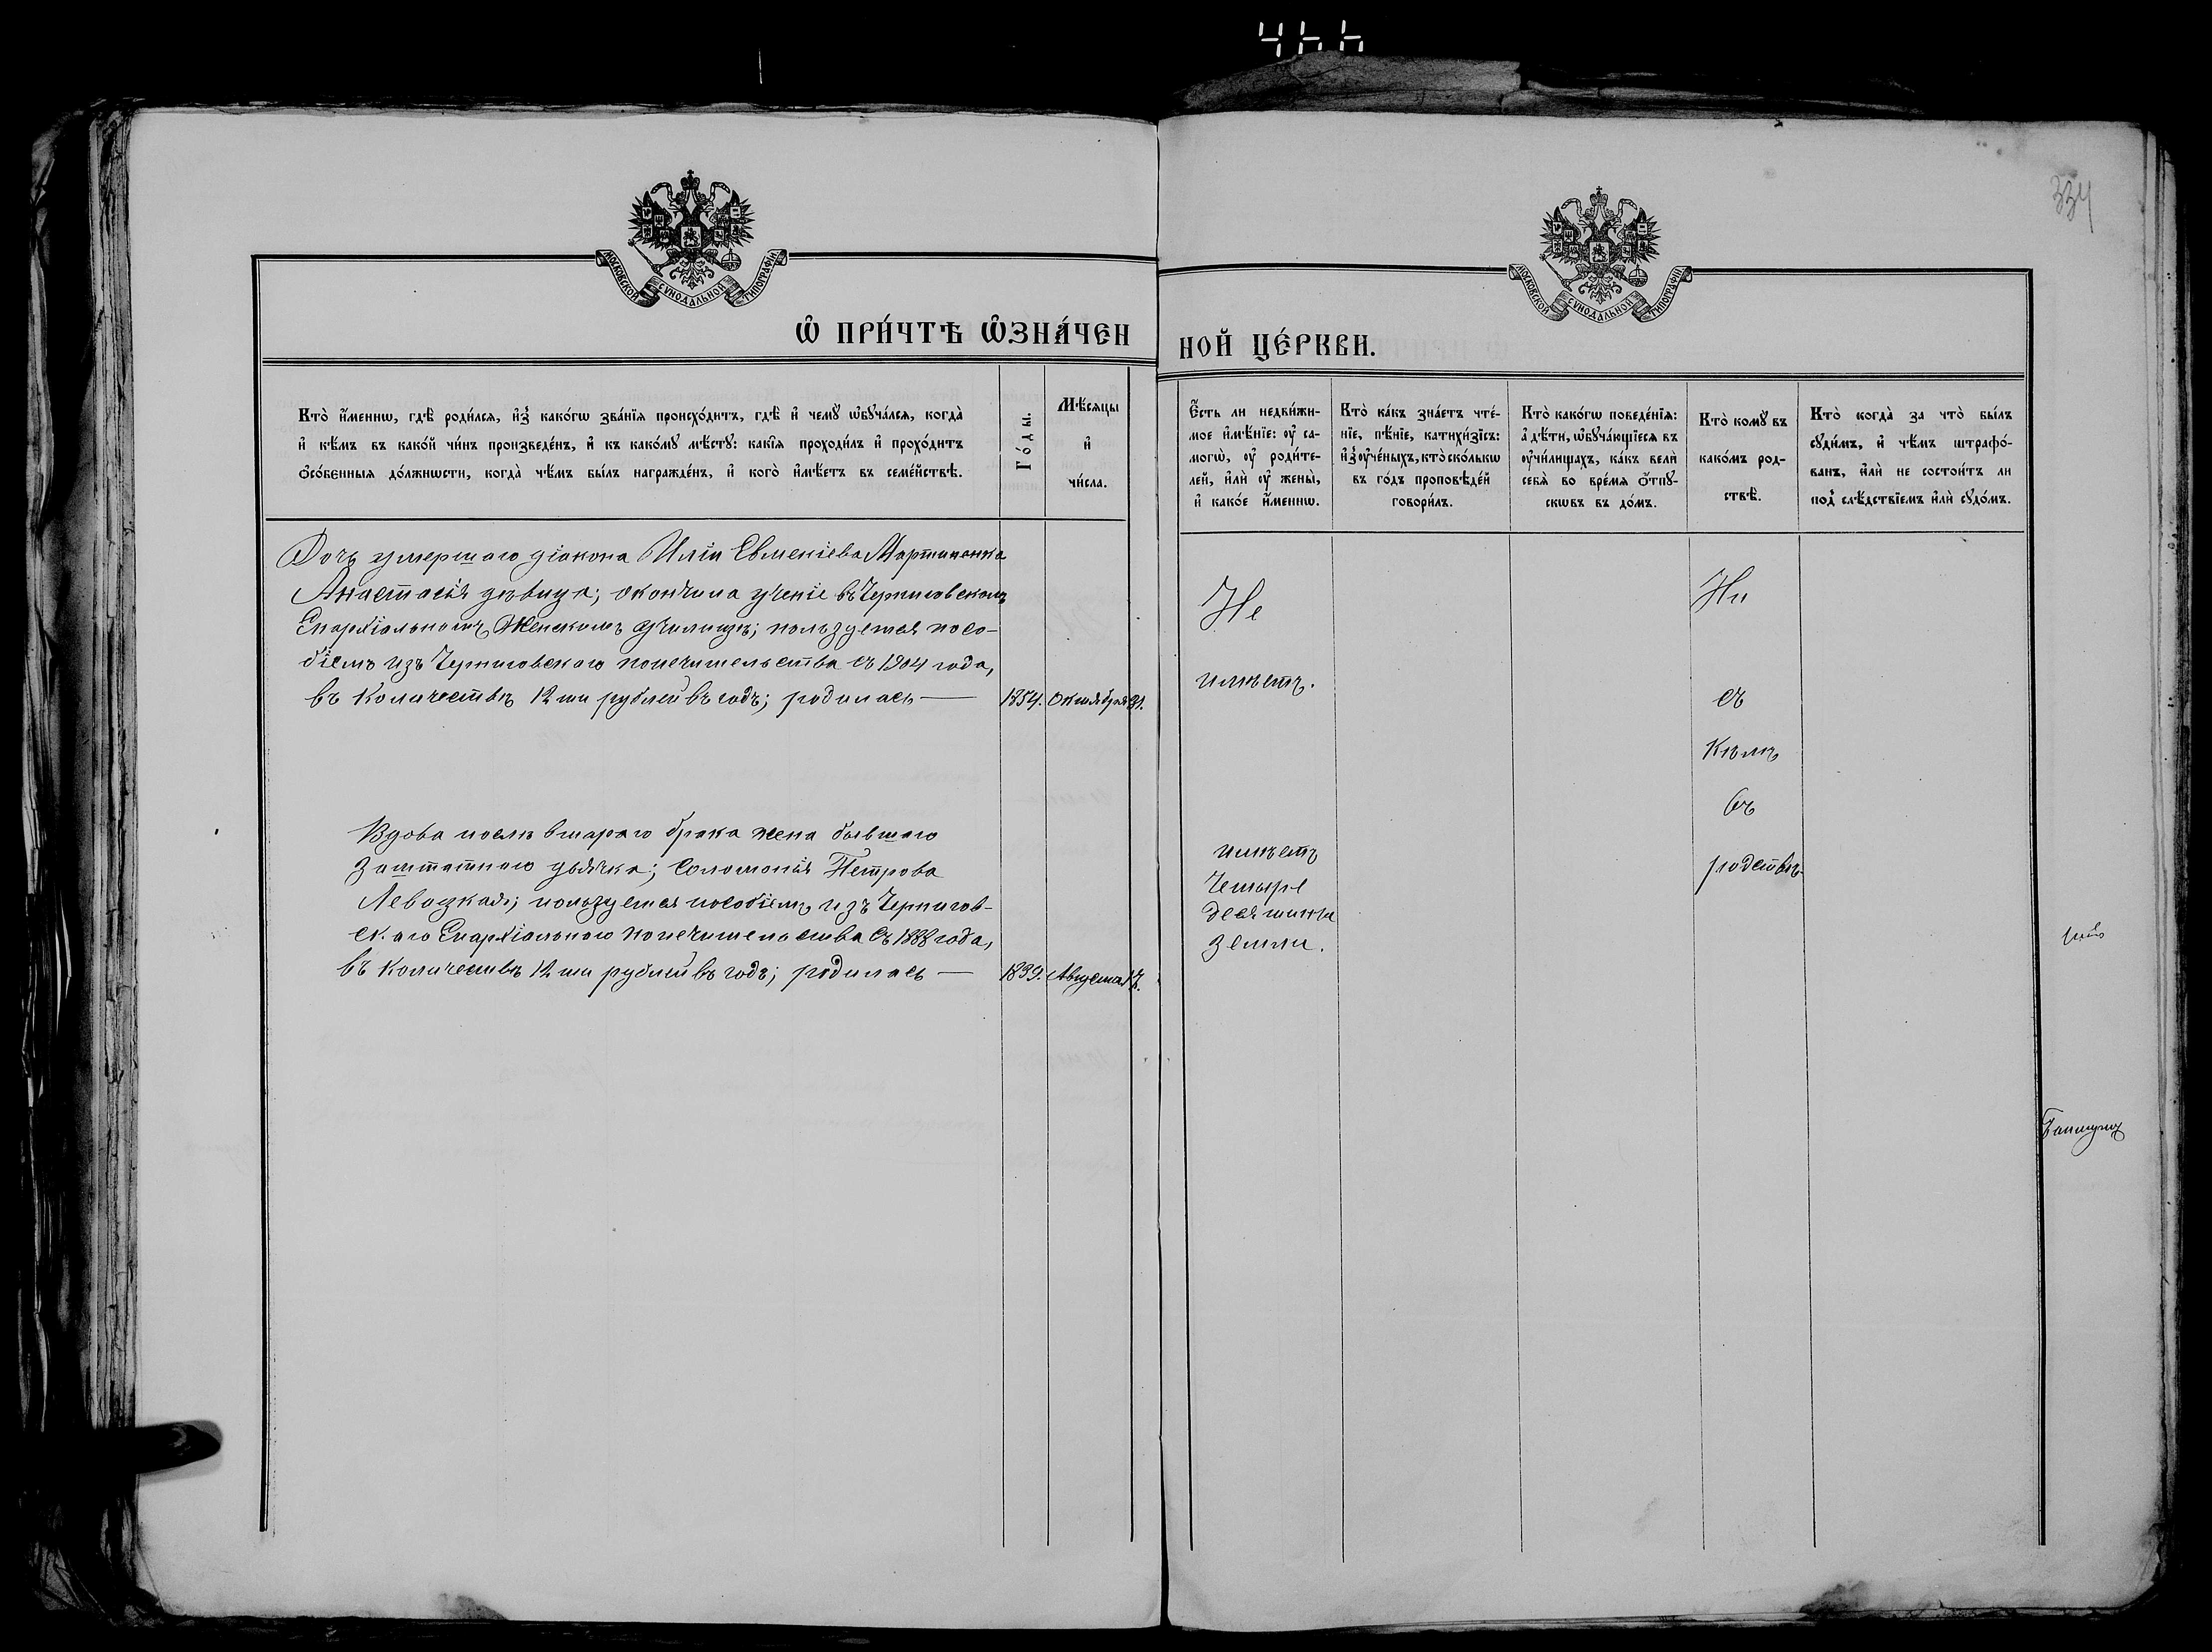 334
МОСКОВСКОЙ СУНОДАЛЬНОЙ ТИПОГРАФІИ
МОСКОВСКОЙ СУНОДАЛЬНОЙ ТИПОГРАФІИ
Ѽ ПРИ́ЧТѢ Ѽ҆ЗНА́ЧЕН
НОЙ ЦЕ́РКВИ.
Кто̀ и҆́меннѡ, гдѣ̀ роди́лся, и҆з̾ како́гѡ зва́нїя происхо́дитъ, гдѣ̀ и҆ чемꙋ̀ ѡ҆бꙋча́лся, когда̀
и҆ кѣ́мъ въ како́й чи́нъ произведе́нъ, и҆ къ како́мꙋ мѣ́стꙋ: какі̑я проходи́лъ и҆ прохо́дитъ
ѻ҆со́бенныя до́лжнѡсти, когда̀ чѣ́мъ бы́лъ награжде́нъ, и҆ кого̀ и҆мѣ́етъ въ семе́йствѣ.
Го́ды.
Мѣ́сяцы
и҆
чи́сла.
Є҆́сть ли недви́жи-
мое и҆мѣ́нїе: ᲂу҆ са-
могѡ̀, ᲂу҆ роди́те-
лей, и҆лѝ ᲂу҆ жены̀,
и҆ како́е и҆́меннѡ.
Кто̀ ка́къ зна́етъ чте́-
нїе, пѣ́нїе, катихи́зїсъ:
и҆з̾ ᲂу҆че́ныхъ, кто̀ ско́лькѡ
въ го́дъ проповѣ́дей
говори́лъ.
Кто̀ како́гѡ поведе́нїя:
а҆ дѣ́ти, ѡ҆бꙋча́ющїеся въ
ᲂу҆чи́лищахъ, ка́къ велѝ
себѧ̀ во вре́мя ѿпꙋ-
скѡвъ въ до́мъ.
Кто̀ комꙋ̀ въ
како́мъ род-
ствѣ̀.
Кто̀ когда̀ за что̀ бы́лъ
сꙋди́мъ, и҆ чѣ́мъ штрафо́-
ванъ, и҆лѝ не состои́тъ ли
под̾ слѣ́дствїемъ и҆лѝ сꙋдо́мъ.
Дочь умершаго діакона Иліи Евменіева Мартиненка
Анастасія дѣвица; окончила ученіе въ Черниговскомъ
Епархіальномъ Женскомъ Училищѣ; пользуется посо-
біемъ изъ Черниговскаго попечительства съ 1904 года,
въ количествѣ 12 ти рублей въ годъ; родилась — 1854. Октября 31.
Не
имѣетъ.
Вдова послѣ втораго брака жена бывшаго
заштатного дьячка; Соломонія Петрова
Левацкая; пользуется пособіемъ изъ Чернигов-
ск.аго Епархіального попечительства съ 1888 года,
въ количествѣ 12 ти рублей въ годъ; родилась — 1839. Августа 17.
имѣетъ
четыре
десятины
земли.
Ни
съ
кѣмъ
въ
родствѣ.